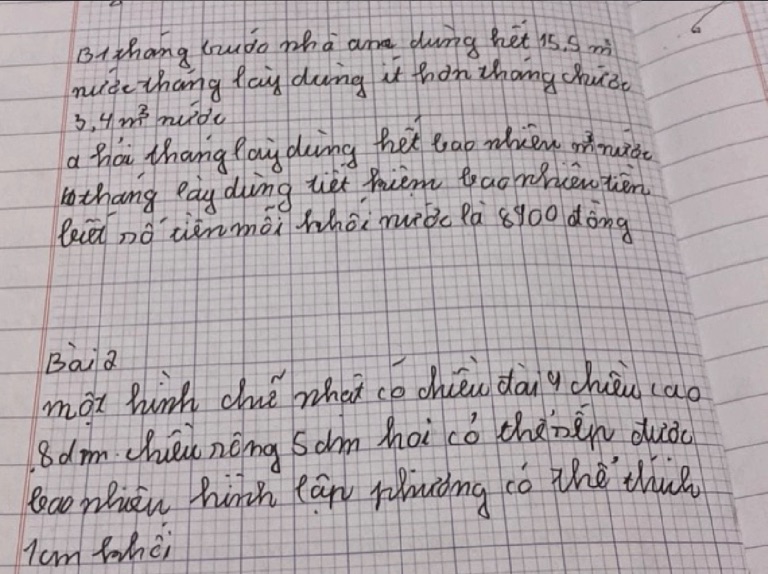 B1 tháng trước nhà ana dùng hết 15,5 m³
nước tháng lày dùng ít hơn tháng chước
3,4 m³ nước
a hỏi tháng lày dùng hết bao nhiêu m³ nước
b tháng lày dùng tiết kiệm bao nhiêu tiền
biết số tiền mỗi khối nước là 8900 đồng
Bài 2
một hình chữ nhật có chiều dài 9 chiều cao
8dm chiều rông 5dm hoi có thể sếp được
bao nhiêu hình lập phương có thể thích
1cm khối